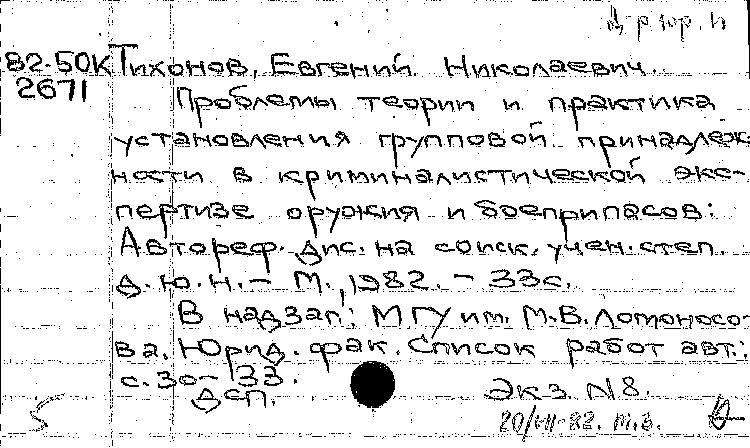 д. р. юр. н
82-50К Тихонов, Евгений Николаевич.
2671 Проблемы теории и практика
установления групповой принадлеж-
ности в криминалистической экс-
пертизе оружия и боеприпасов:
Автореф. дис. на соиск. учен. степ.
д. ю. н. - М., 1982. - 33с.
В надзаг: МГУ им. М.В. Ломоносо-
ва. Юрид. фак. Список работ авт.:
с. 30-33.
ДСП. Экз. N 8.
20/VII-82. м.з.